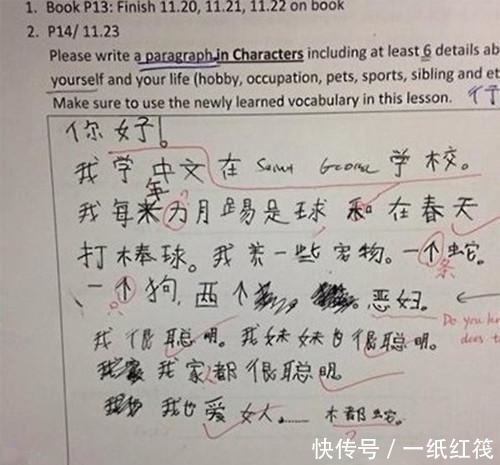 1. Book P13: Finish 11.20, 11.21, 11.22 on book
2. P14/ 11.23
Please write a paragraph in Characters including at least 6 details ab
yourself and your life (hobby, occupation, pets, sports, sibling and et
Make sure to use the newly learned vocabulary in this lesson.
你好!
我学中文在 Saint George 学校。
年
我每 力月踢是球 和在春天
打棒球。我养一些宠物。一个蛇。
条
一个狗,西个 恶妇。
Do you kn
does t
我很聪明。我妹妹也很聪明。
我家都很聪明
我也爱女人…… 木都蛇。
快传号/一纸红筏